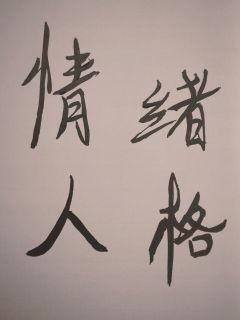 情绪
人格